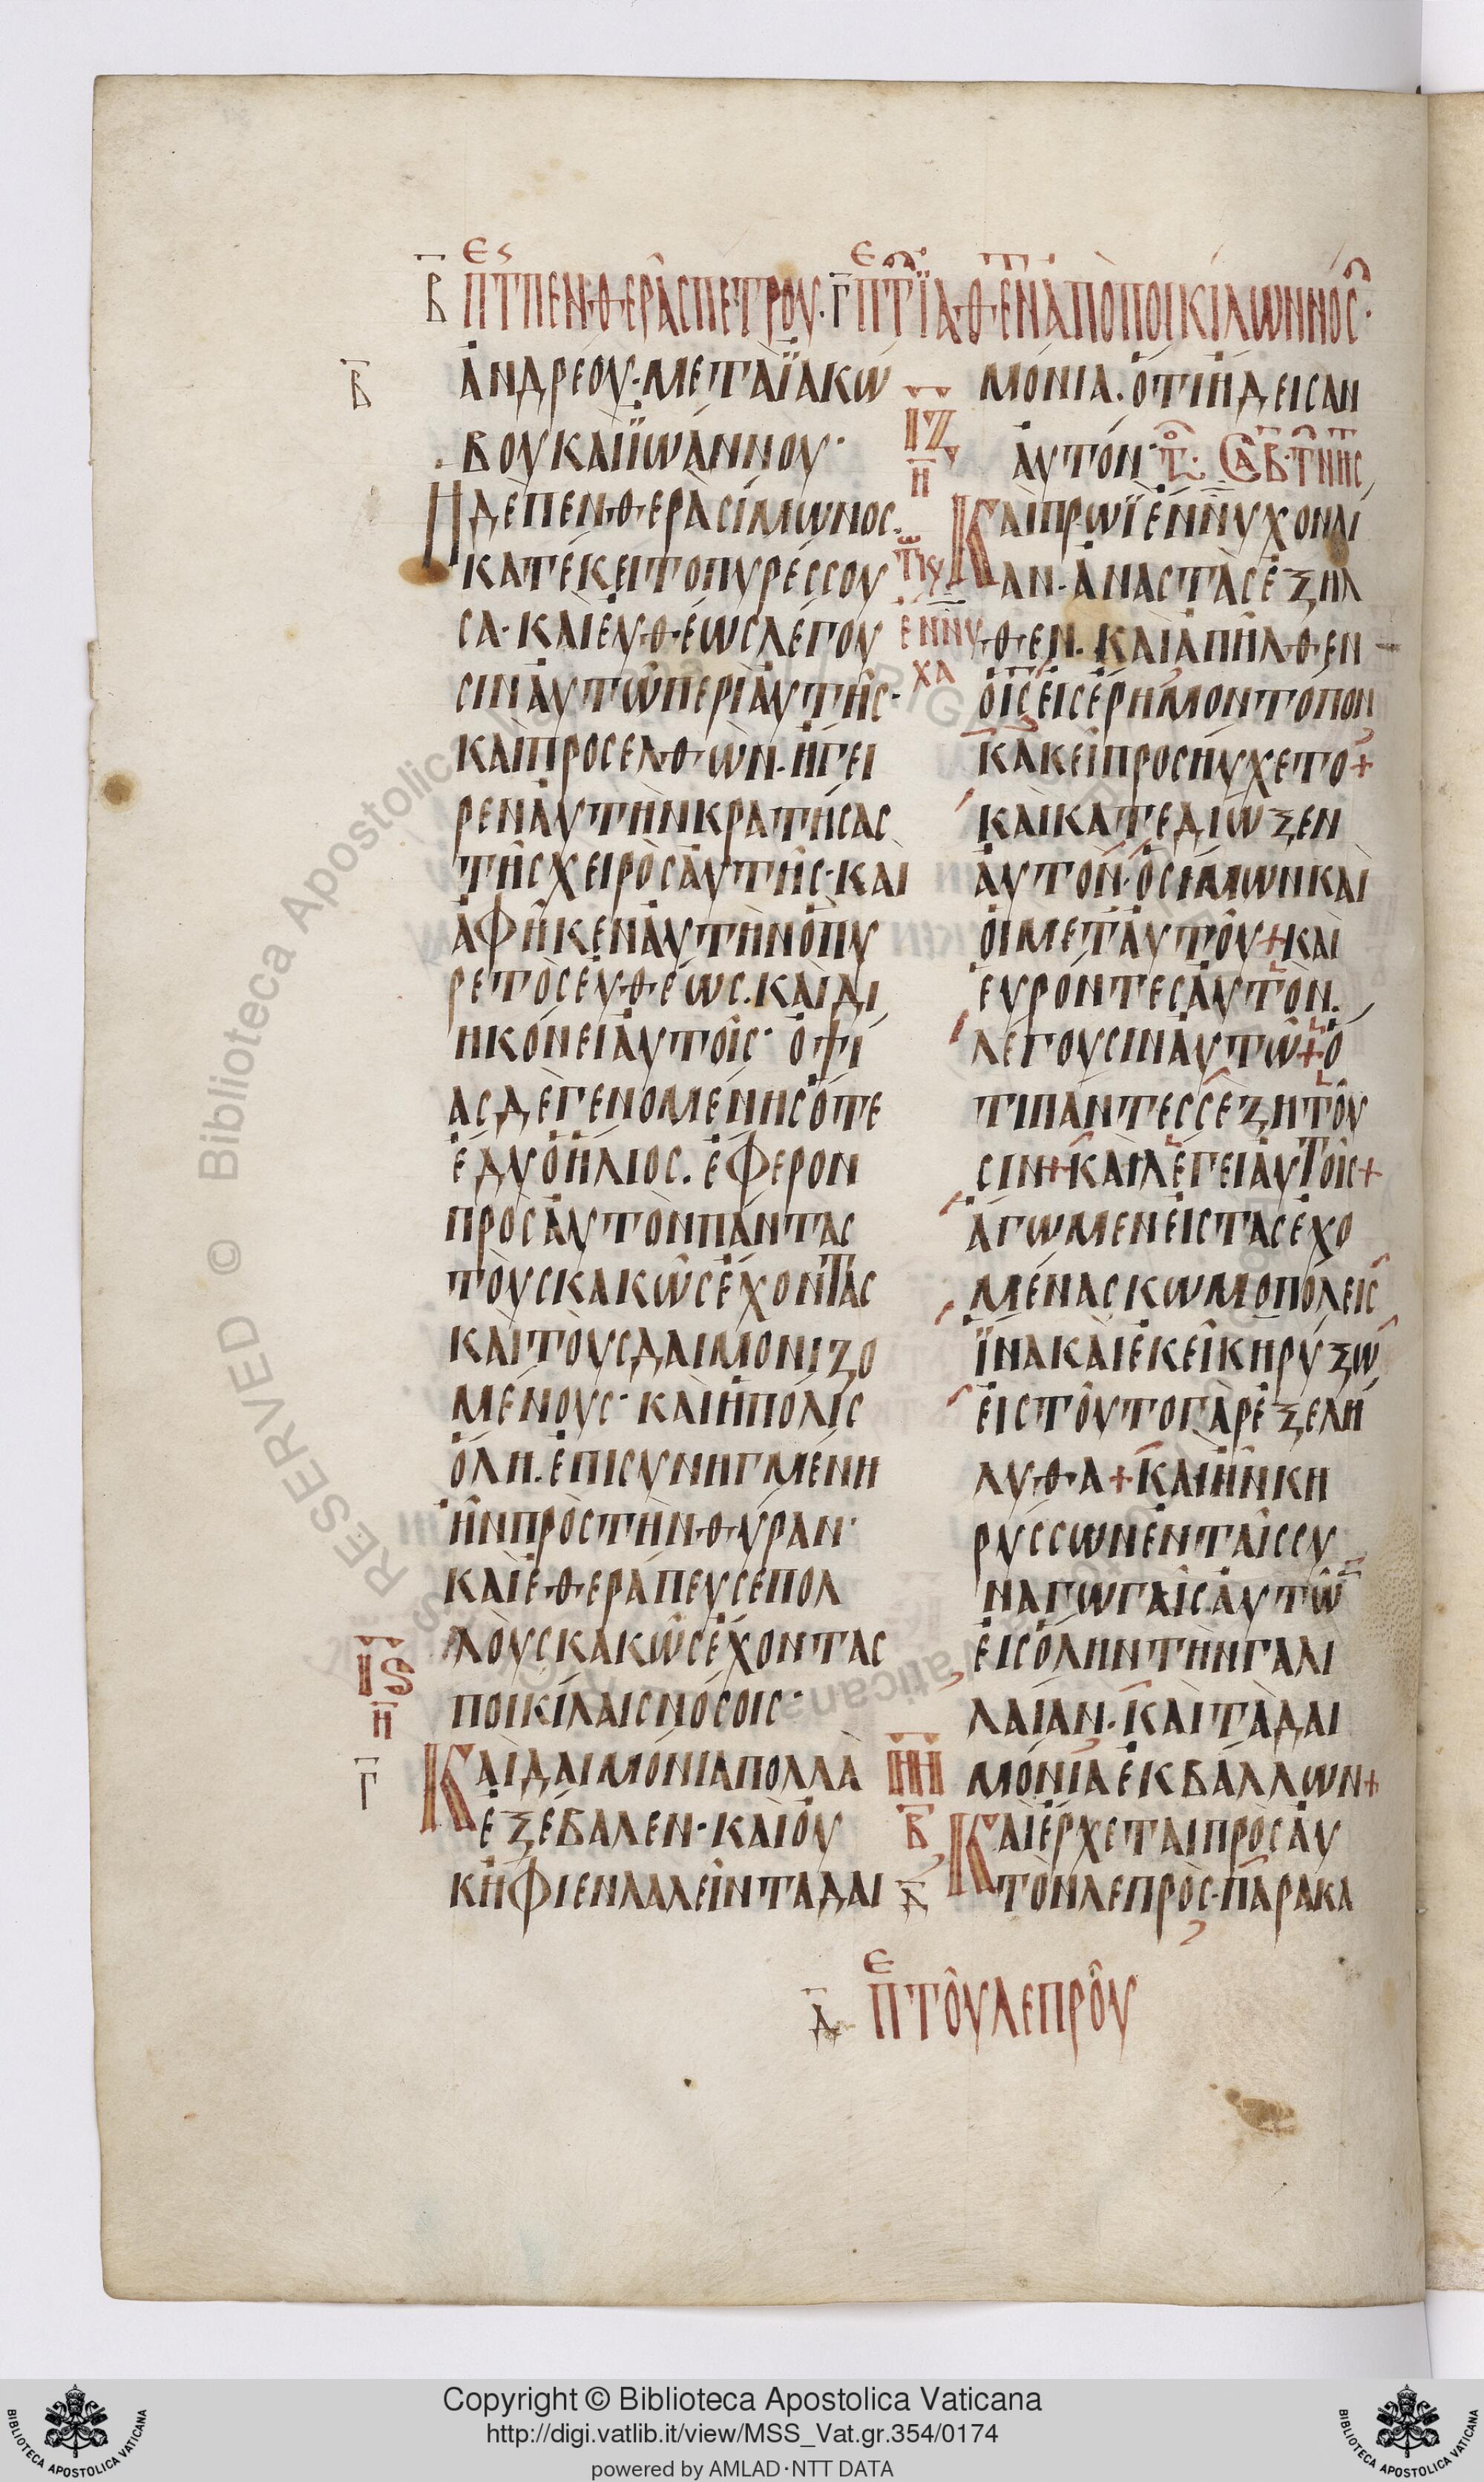 Β ΠΤ ΠΕΝΘΕΡΑΣ ΠΕΤΡΟΥ· Γ ΠΤ ΙΑΘΕΝ ΑΠΟ ΠΟΙΚΙΛΩΝ ΝΟΣ·
Β
ἈΝΔΡΕΟΥ· ΜΕΤΑ ΪΑΚΩ
ΒΟΥ ΚΑΙ ΪΩΑΝΝΟΥ·
Η ΔΕ ΠΕΝΘΕΡΑ ΣΙΜΩΝΟΣ
ΚΑΤΕΚΕΙΤΟ ΠΥΡΕΣΣΟΥ
ΣΑ· ΚΑΙ ΕΥΘΕΩΣ ΛΕΓΟΥ
ΣΙΝ ΑΥΤΩ ΠΕΡΙ ΑΥΤΗΣ·
ΚΑΙ ΠΡΟΣΕΛΘΩΝ· ΗΓΕΙ
ΡΕΝ ΑΥΤΗΝ ΚΡΑΤΗΣΑΣ
ΤΗΣ ΧΕΙΡΟΣ ΑΥΤΗΣ· ΚΑΙ
ΑΦΗΚΕΝ ΑΥΤΗΝ Ο ΠΥ
ΡΕΤΟΣ ΕΥΘΕΩΣ. ΚΑΙ ΔΙ
ΗΚΟΝΕΙ ΑΥΤΟΙΣ· ΟΨΙ
ΑΣ ΔΕ ΓΕΝΟΜΕΝΗΣ ΟΤΕ
ΕΔΥ Ο ΗΛΙΟΣ. ΕΦΕΡΟΝ
ΠΡΟΣ ΑΥΤΟΝ ΠΑΝΤΑΣ
ΤΟΥΣ ΚΑΚΩΣ ΕΧΟΝΤΑΣ
ΚΑΙ ΤΟΥΣ ΔΑΙΜΟΝΙΖΟ
ΜΕΝΟΥΣ· ΚΑΙ Η ΠΟΛΙΣ
ΟΛΗ. ΕΠΙΣΥΝΗΓΜΕΝΗ
ΗΝ ΠΡΟΣ ΤΗΝ ΘΥΡΑΝ·
ΚΑΙ ΕΘΕΡΑΠΕΥΣΕ ΠΟΛ
ΛΟΥΣ ΚΑΚΩΣ ΕΧΟΝΤΑΣ
ΙϚ
Η
ΠΟΙΚΙΛΑΙΣ ΝΟΣΟΙΣ·
Γ
ΚΑΙ ΔΑΙΜΟΝΙΑ ΠΟΛΛΑ
ΕΞΕΒΑΛΕΝ· ΚΑΙ ΟΥ
Κ ΗΦΙΕΝ ΛΑΛΕΙΝ ΤΑ ΔΑΙ
ΜΟΝΙΑ. ΟΤΙ ΗΔΕΙΣΑΝ
ΙΖ
Η
ΑΥΤΟΝ· ΣΑΒ· Τ ΝΗΣ
ΕΝΝΥ
ΧΑ
ΚΑΙ ΠΡΩΪ ΕΝΝΥΧΟΝ ΛΙ
ΑΝ· ΑΝΑΣΤΑΣ ΕΞΗΛ
ΘΕΝ. ΚΑΙ ΑΠΗΛΘΕΝ
Ο ΙΣ ΕΙΣ ΕΡΗΜΟΝ ΤΟΠΟΝ
ΚΑΚΕΙ ΠΡΟΣΗΥΧΕΤΟ+
ΚΑΙ ΚΑΤΕΔΙΩΞΕΝ
ΑΥΤΟΝ· Ο ΣΙΜΩΝ ΚΑΙ
ΟΙ ΜΕΤ ΑΥΤΟΥ+ ΚΑΙ
ΕΥΡΟΝΤΕΣ ΑΥΤΟΝ.
ΛΕΓΟΥΣΙΝ ΑΥΤΩ+ Ο
ΤΙ ΠΑΝΤΕΣ ΣΕ ΖΗΤΟΥ
ΣΙΝ+ ΚΑΙ ΛΕΓΕΙ ΑΥΤΟΙΣ+
ΑΓΩΜΕΝ ΕΙΣ ΤΑΣ ΕΧΟ
ΜΕΝΑΣ ΚΩΜΟΠΟΛΕΙΣ
ΪΝΑ ΚΑΙ ΕΚΕΙ ΚΗΡΥΞΩ
ΕΙΣ ΤΟΥΤΟ ΓΑΡ ΕΞΕΛΗ
ΛΥΘΑ+ ΚΑΙ ΗΝ ΚΗ
ΡΥΣΣΩΝ ΕΝ ΤΑΙΣ ΣΥ
ΝΑΓΩΓΑΙΣ ΑΥΤΩ̅
ΕΙΣ ΟΛΗΝ ΤΗΝ ΓΑΛΙ
ΛΑΙΑΝ· ΚΑΙ ΤΑ ΔΑΙ
ΙΗ
Β
ΜΟΝΙΑ ΕΚΒΑΛΛΩΝ+
ΚΑΙ ΕΡΧΕΤΑΙ ΠΡΟΣ ΑΥ
Δ
ΤΟΝ ΛΕΠΡΟΣ· ΠΑΡΑΚΑ
Δ ΠΤ ΤΟΥ ΛΕΠΡΟΥ
Copyright © Biblioteca Apostolica Vaticana
http://digi.vatlib.it/view/MSS_Vat.gr.354/0174
powered by AMLAD·NTT DATA
BIBLIOTECA APOSTOLICA VATICANA
BIBLIOTECA APOSTOLICA VATICANA